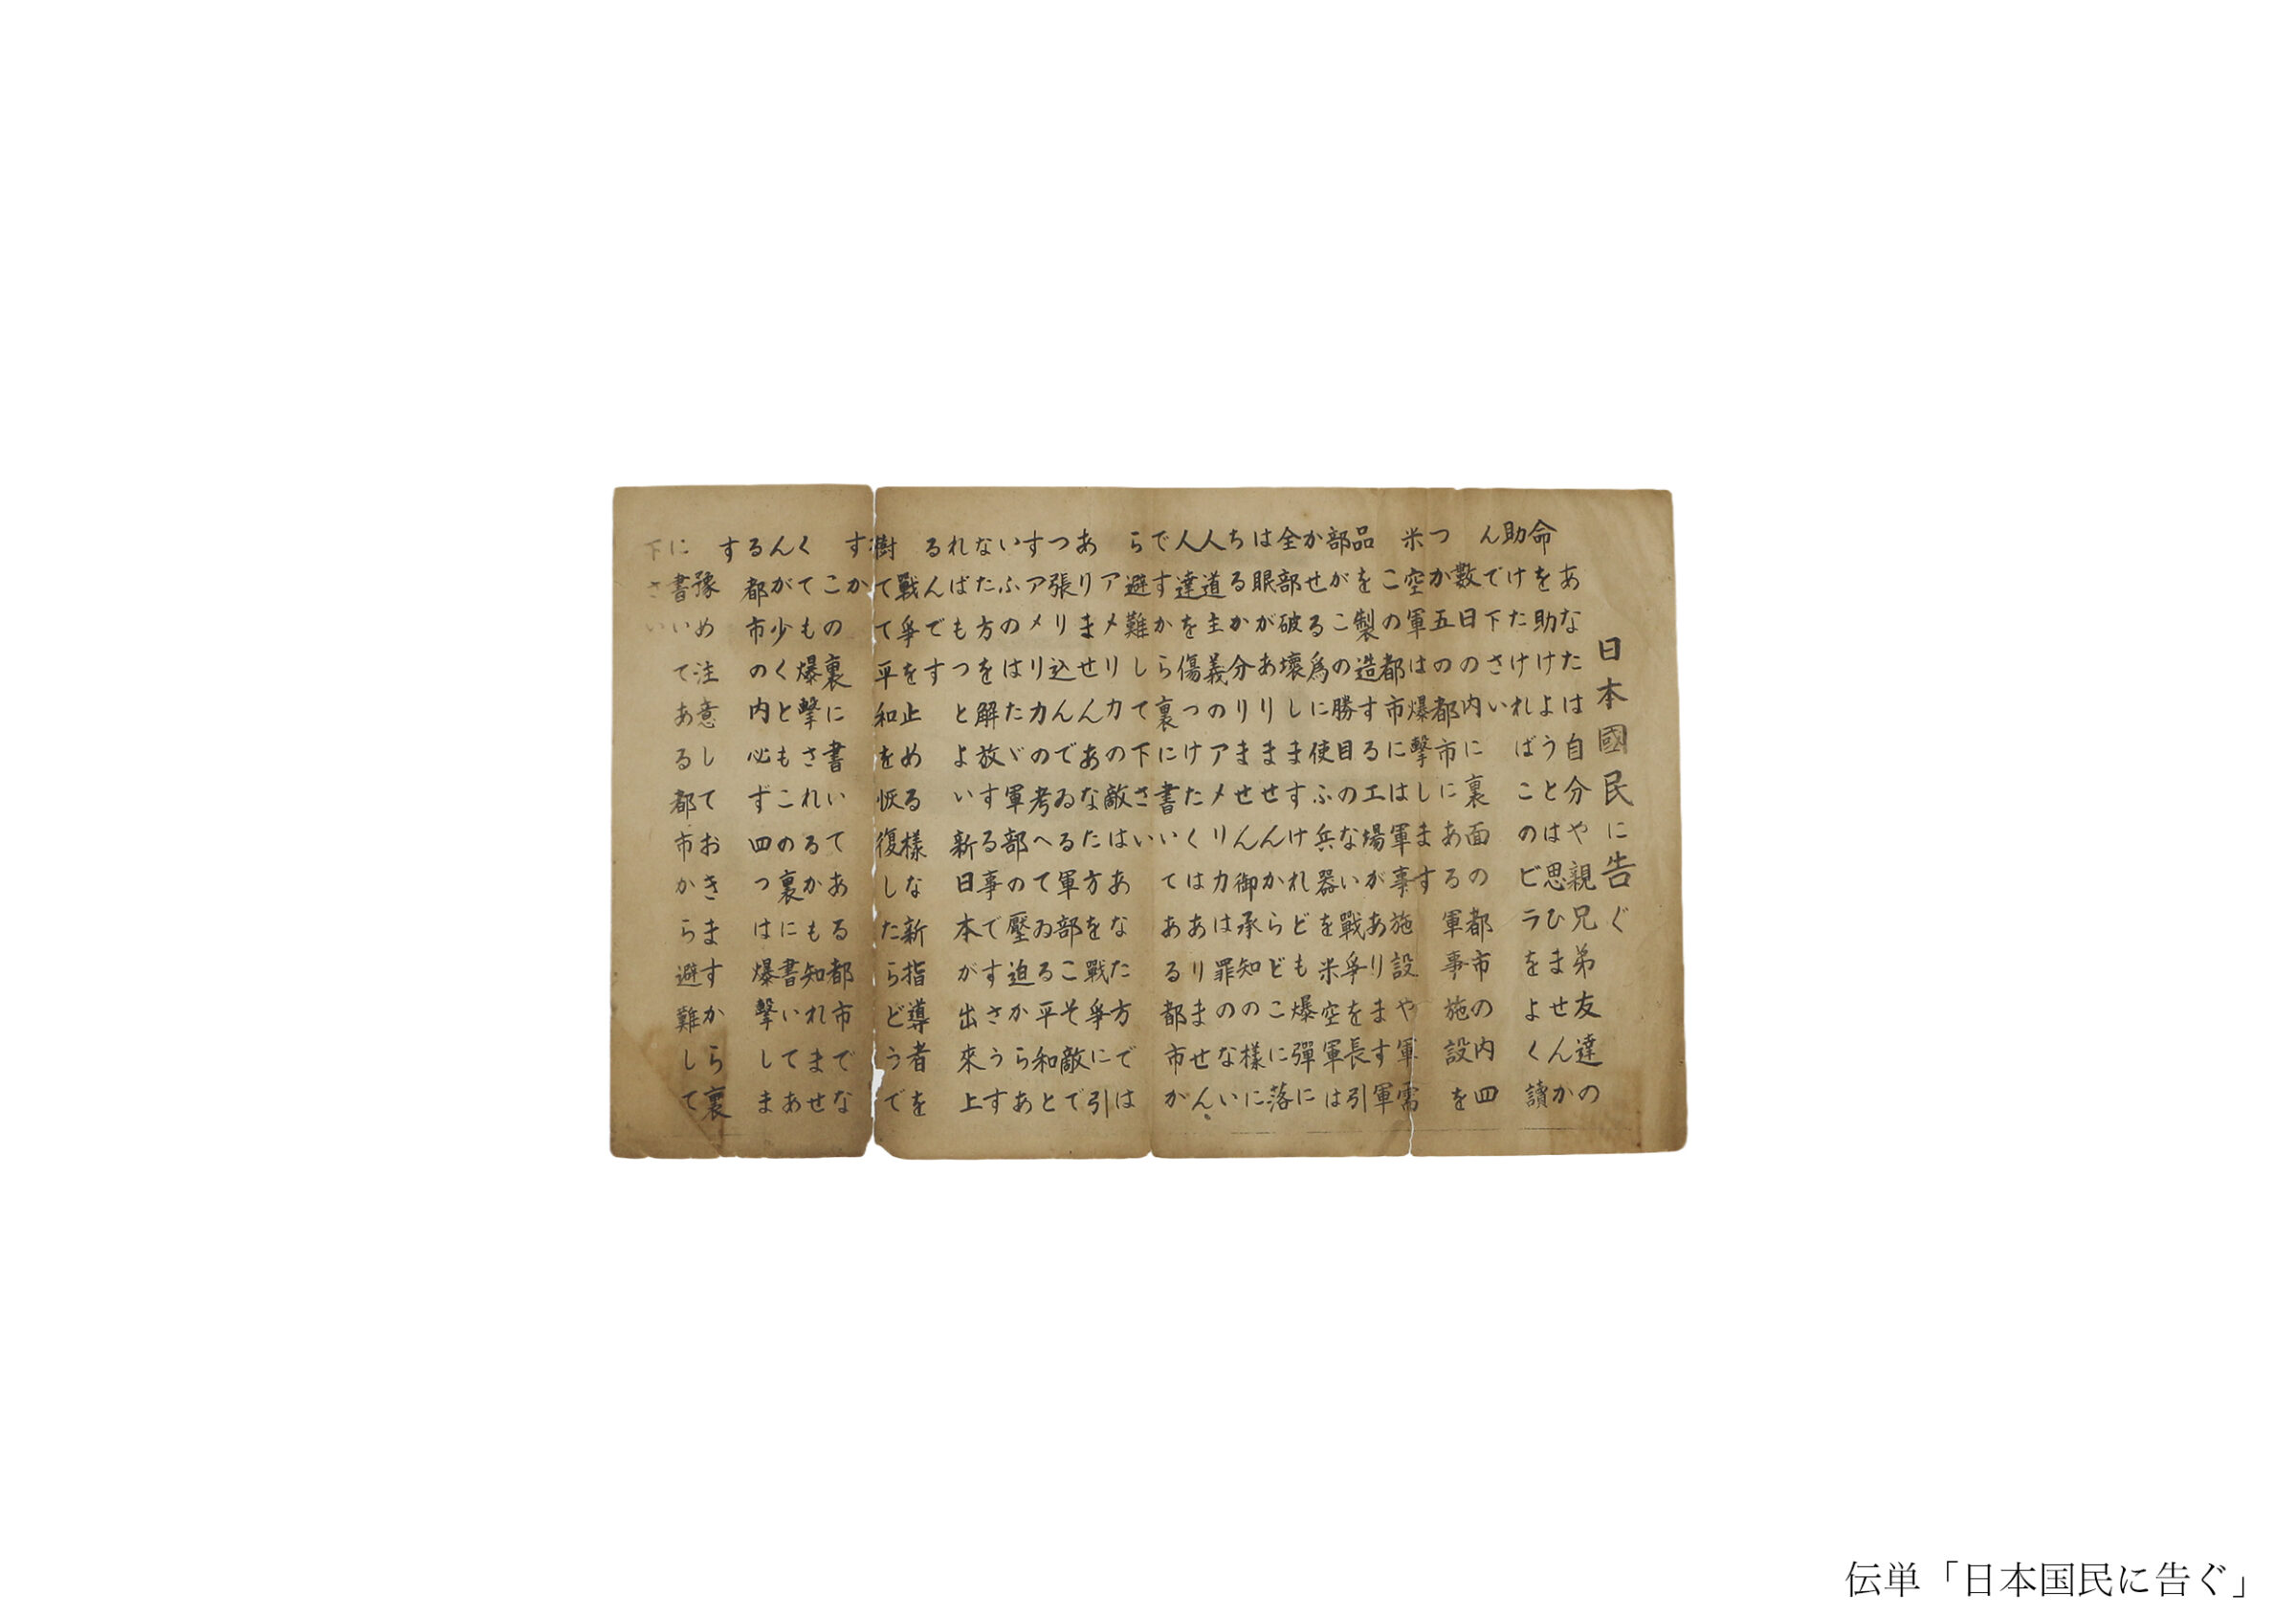 日本國民に告ぐ
あなたは自分や親兄弟友達の
命を助けようとは思ひませんか
助けたければこのビラをよく讀
んで下さい
數日の内に裏面の都市の内四
つか五の都市にある軍事施設を
米空軍は爆撃します
この都市には軍事施設や軍需
品を製造する工場があります軍
部がこの勝目のない戰爭を長引
かせる爲に使ふ兵器を米空軍は
全部破壞しますけれども爆彈に
は眼がありませんからどこに落
ちるか分りません御承知の樣に
人道主義のアメリカは罪のない
人達を傷つけたくはありません
ですから裏に書いてある都市が
ら避難して下さい
アメリカの敵はあなた方では
ありませんあなた方を戰爭に引
つ張り込んでゐる軍部こそ敵で
すアメリカの考へてゐる平和と
いふのはたゞ軍部の壓迫からあ
なた方を解放する事ですさうす
ればもつとよい新日本が出來上
るんです
戰爭を止める樣な新指導者を
樹てて平和を恢復したらどうで
すか
この裏に書いてある都市でな
くても爆撃されるかも知れませ
んが少くともこの裏に書いてあ
る都市の内必ず四つは爆撃しま
す
豫め注意しておきますから裏
に書いてある都市から避難して
下さい
伝単「日本国民に告ぐ」